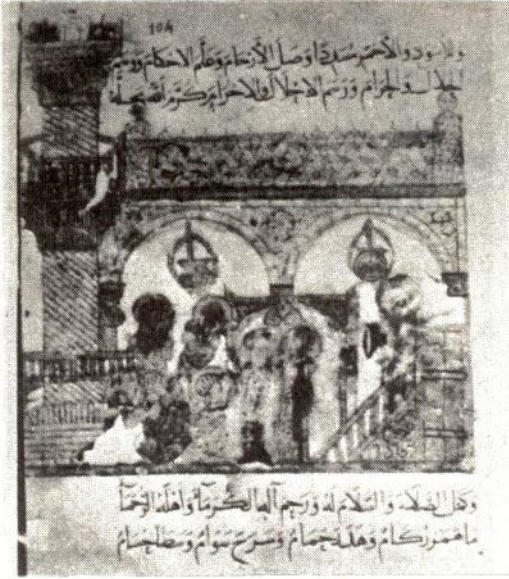 104
وللاسود والاحمر مسددا وصل الأرحام وعلم الاحكام ووسم
الحلال والحرام ورسم الاحلال والاحرام كرم الله محله
وكمل الصلاة والسلام له ورحم آله الكرما واهله الرحما
ما همر ركام وهدر حمام وسرح سوام وسطا حسام